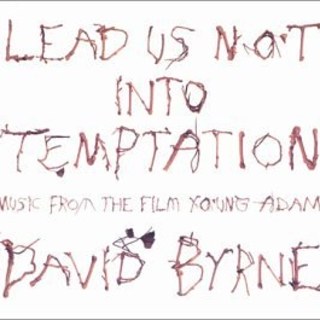 LEAD US NOT
INTO
TEMPTATION
MUSIC FROM THE FILM YOUNG ADAM
DAVID BYRNE